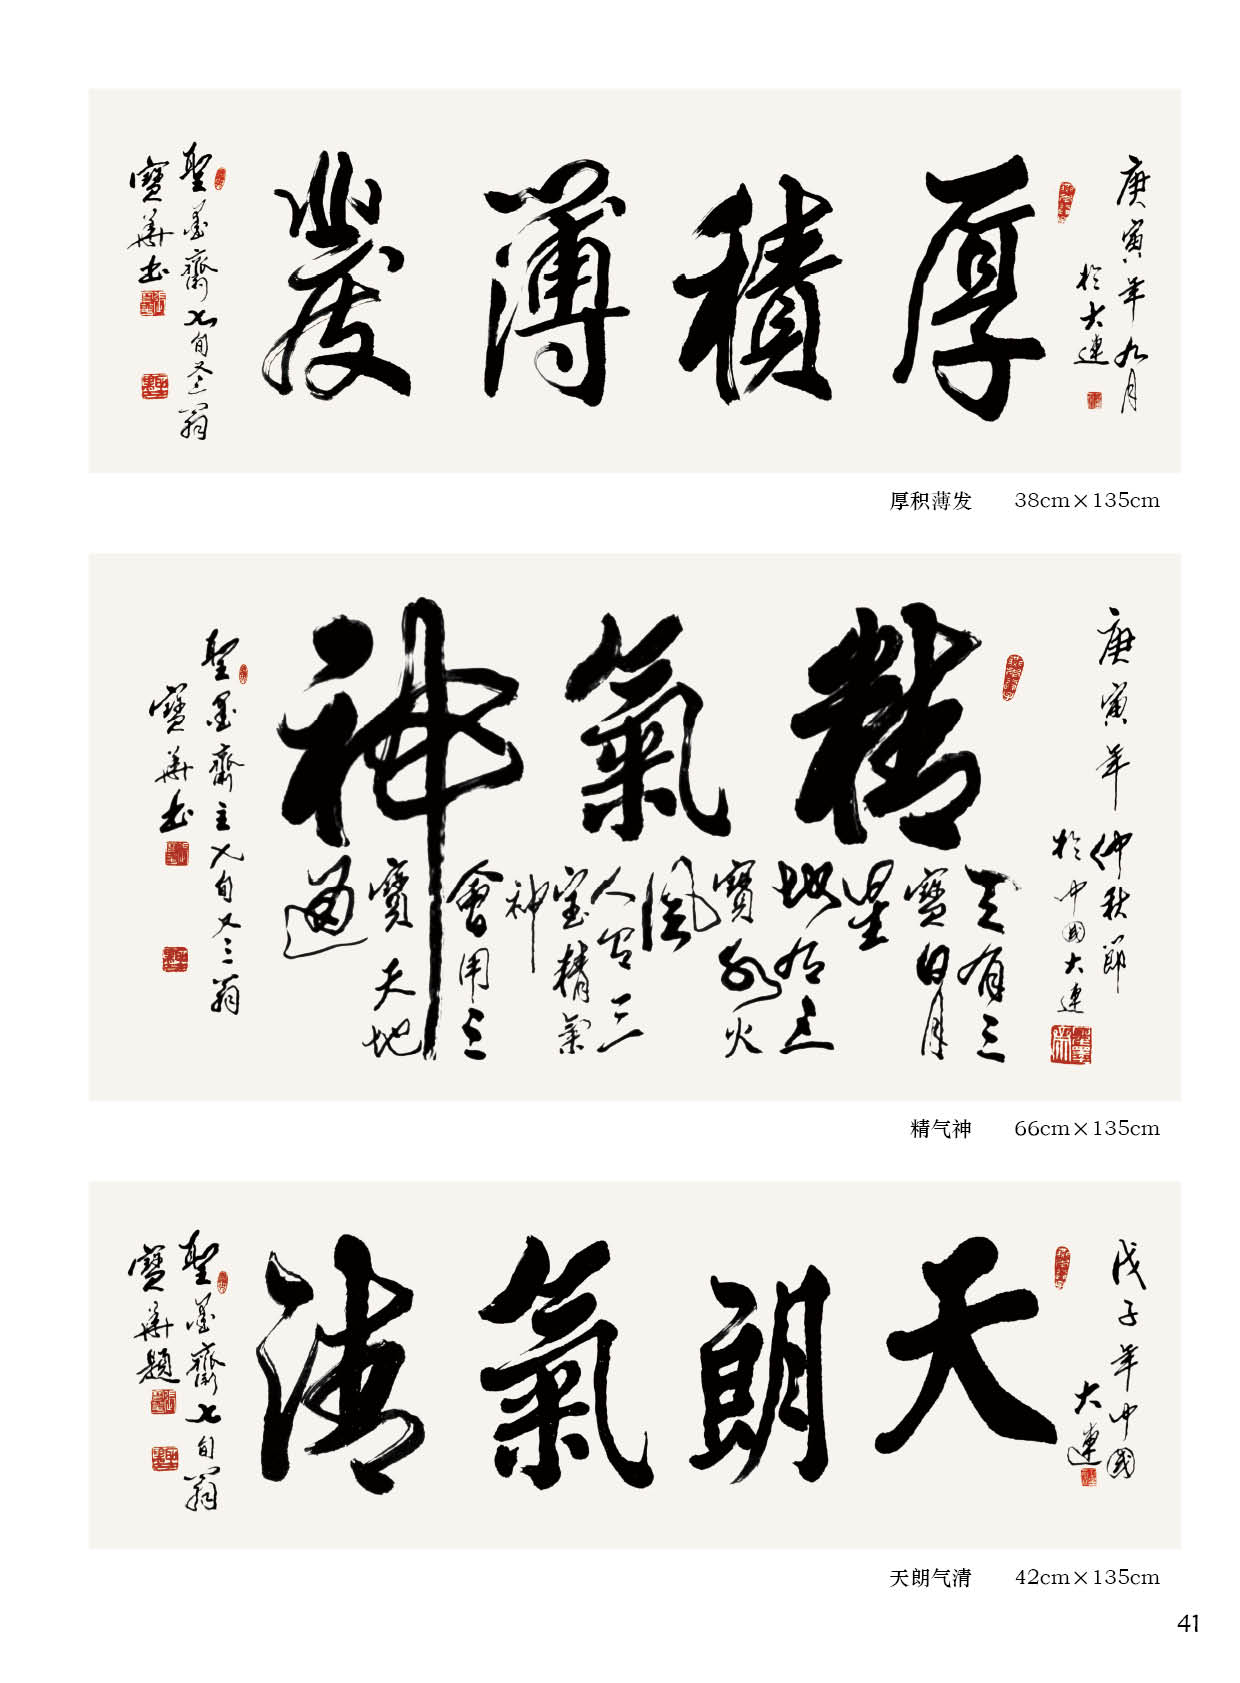 庚寅年九月
於大連
厚積薄發
聖墨齋七旬又二翁
寶華书
厚积薄发 38cm×135cm
庚寅年仲秋節
於中國大連
精氣神
天有三
寶日月
星
地有三
寶水火
風
人有三
宝精氣
神
會用三
寶天地
通
聖墨齋主七旬又三翁
寶華书
精气神 66cm×135cm
戊子年中國
大連
天朗氣清
聖墨齋七旬翁
寶華題
天朗气清 42cm×135cm
41